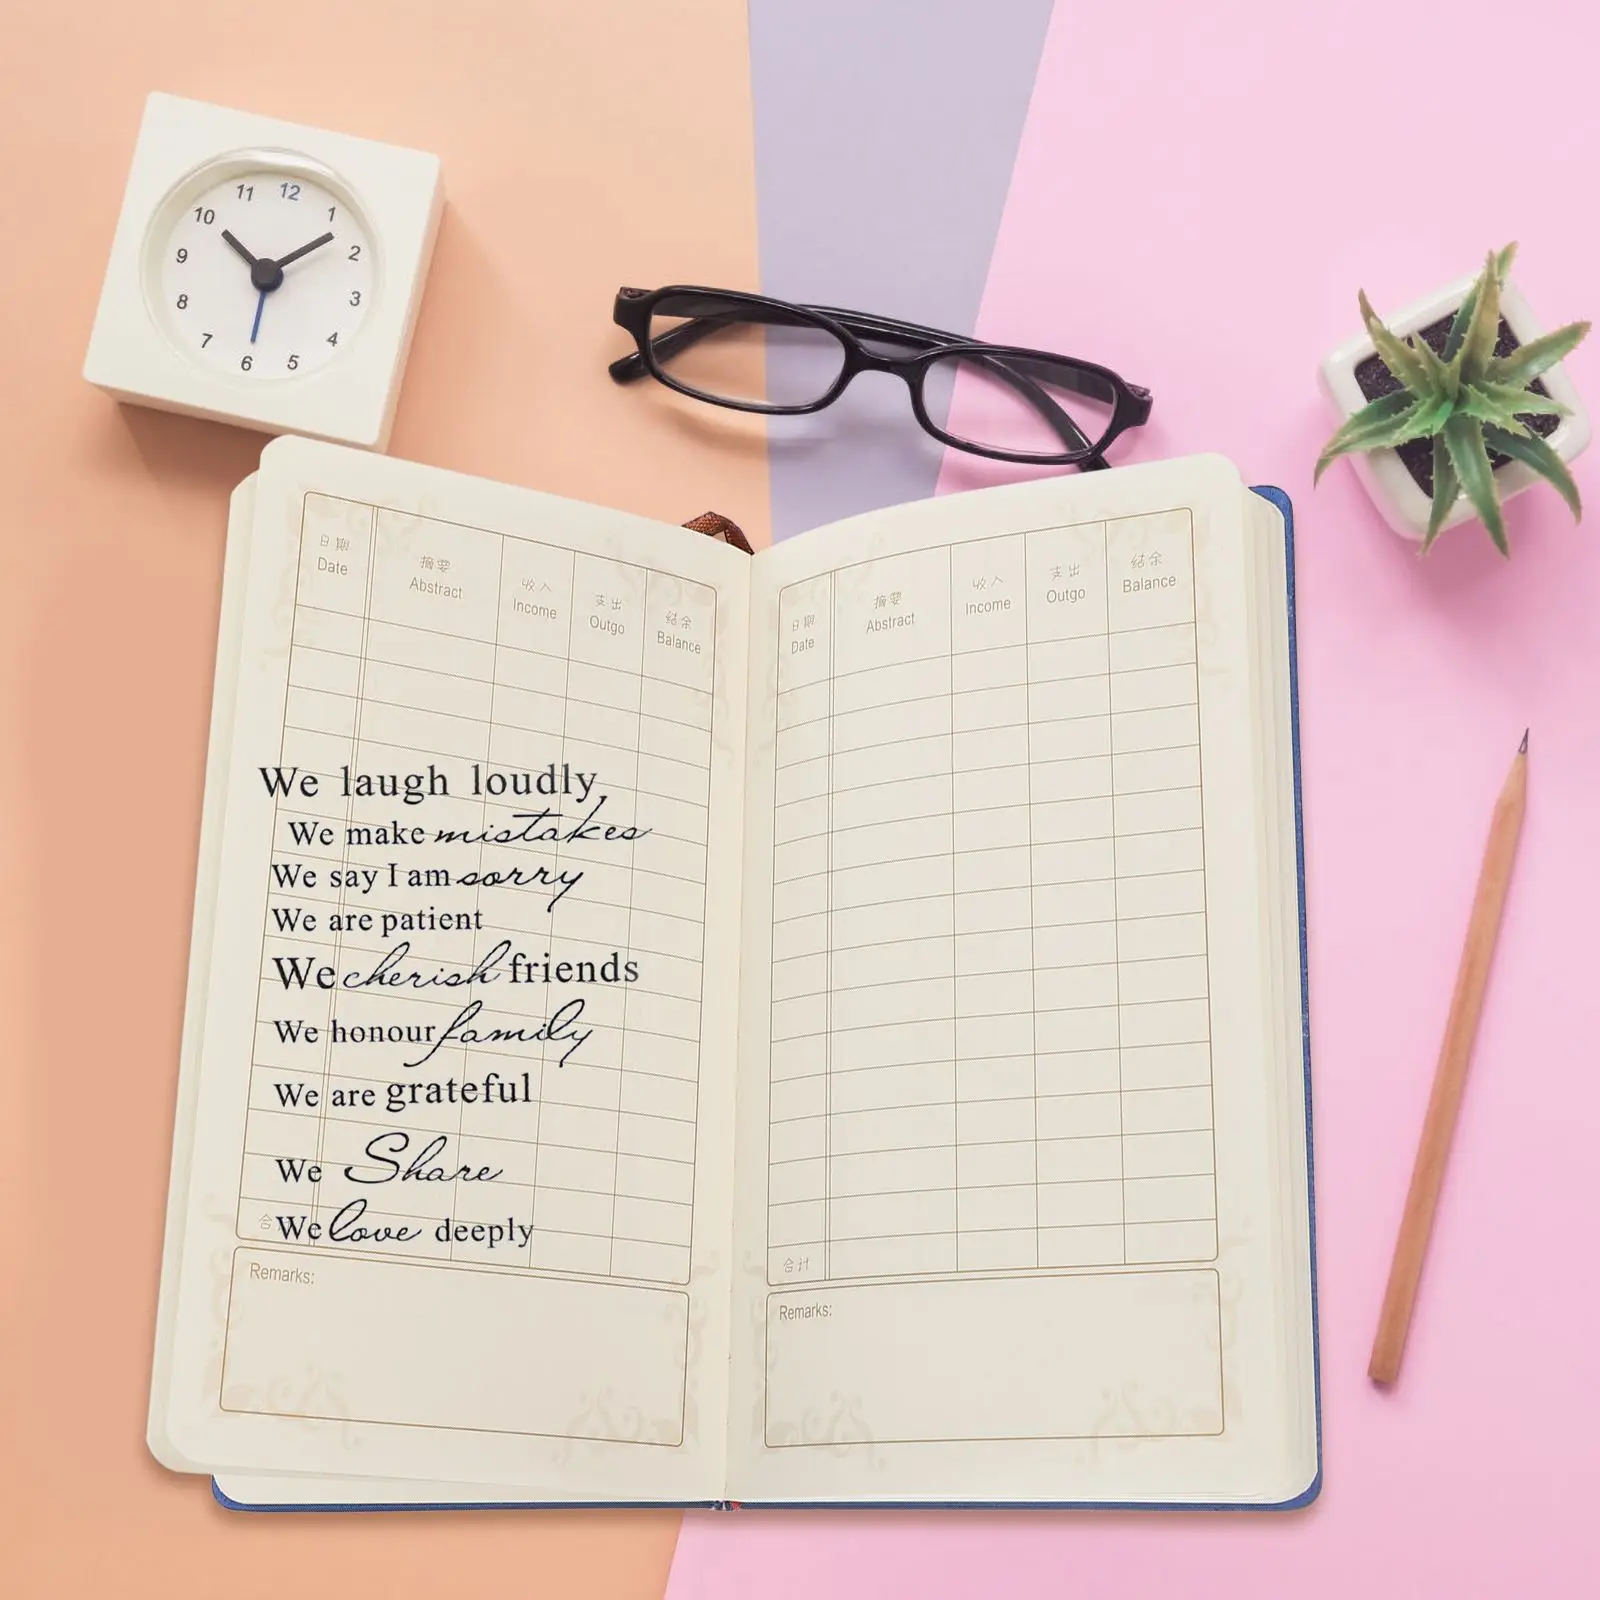 11 12
10 1
9 2
8 3
7 4
6 5
日期 摘要 收入 支出 结余
Date Abstract Income Outgo Balance
We laugh loudly,
We make mistakes
We say I am sorry
We are patient
We cherish friends
We honour family
We are grateful
We Share
合 We love deeply
Remarks:
日期 摘要 收入 支出 结余
Date Abstract Income Outgo Balance
合计
Remarks: